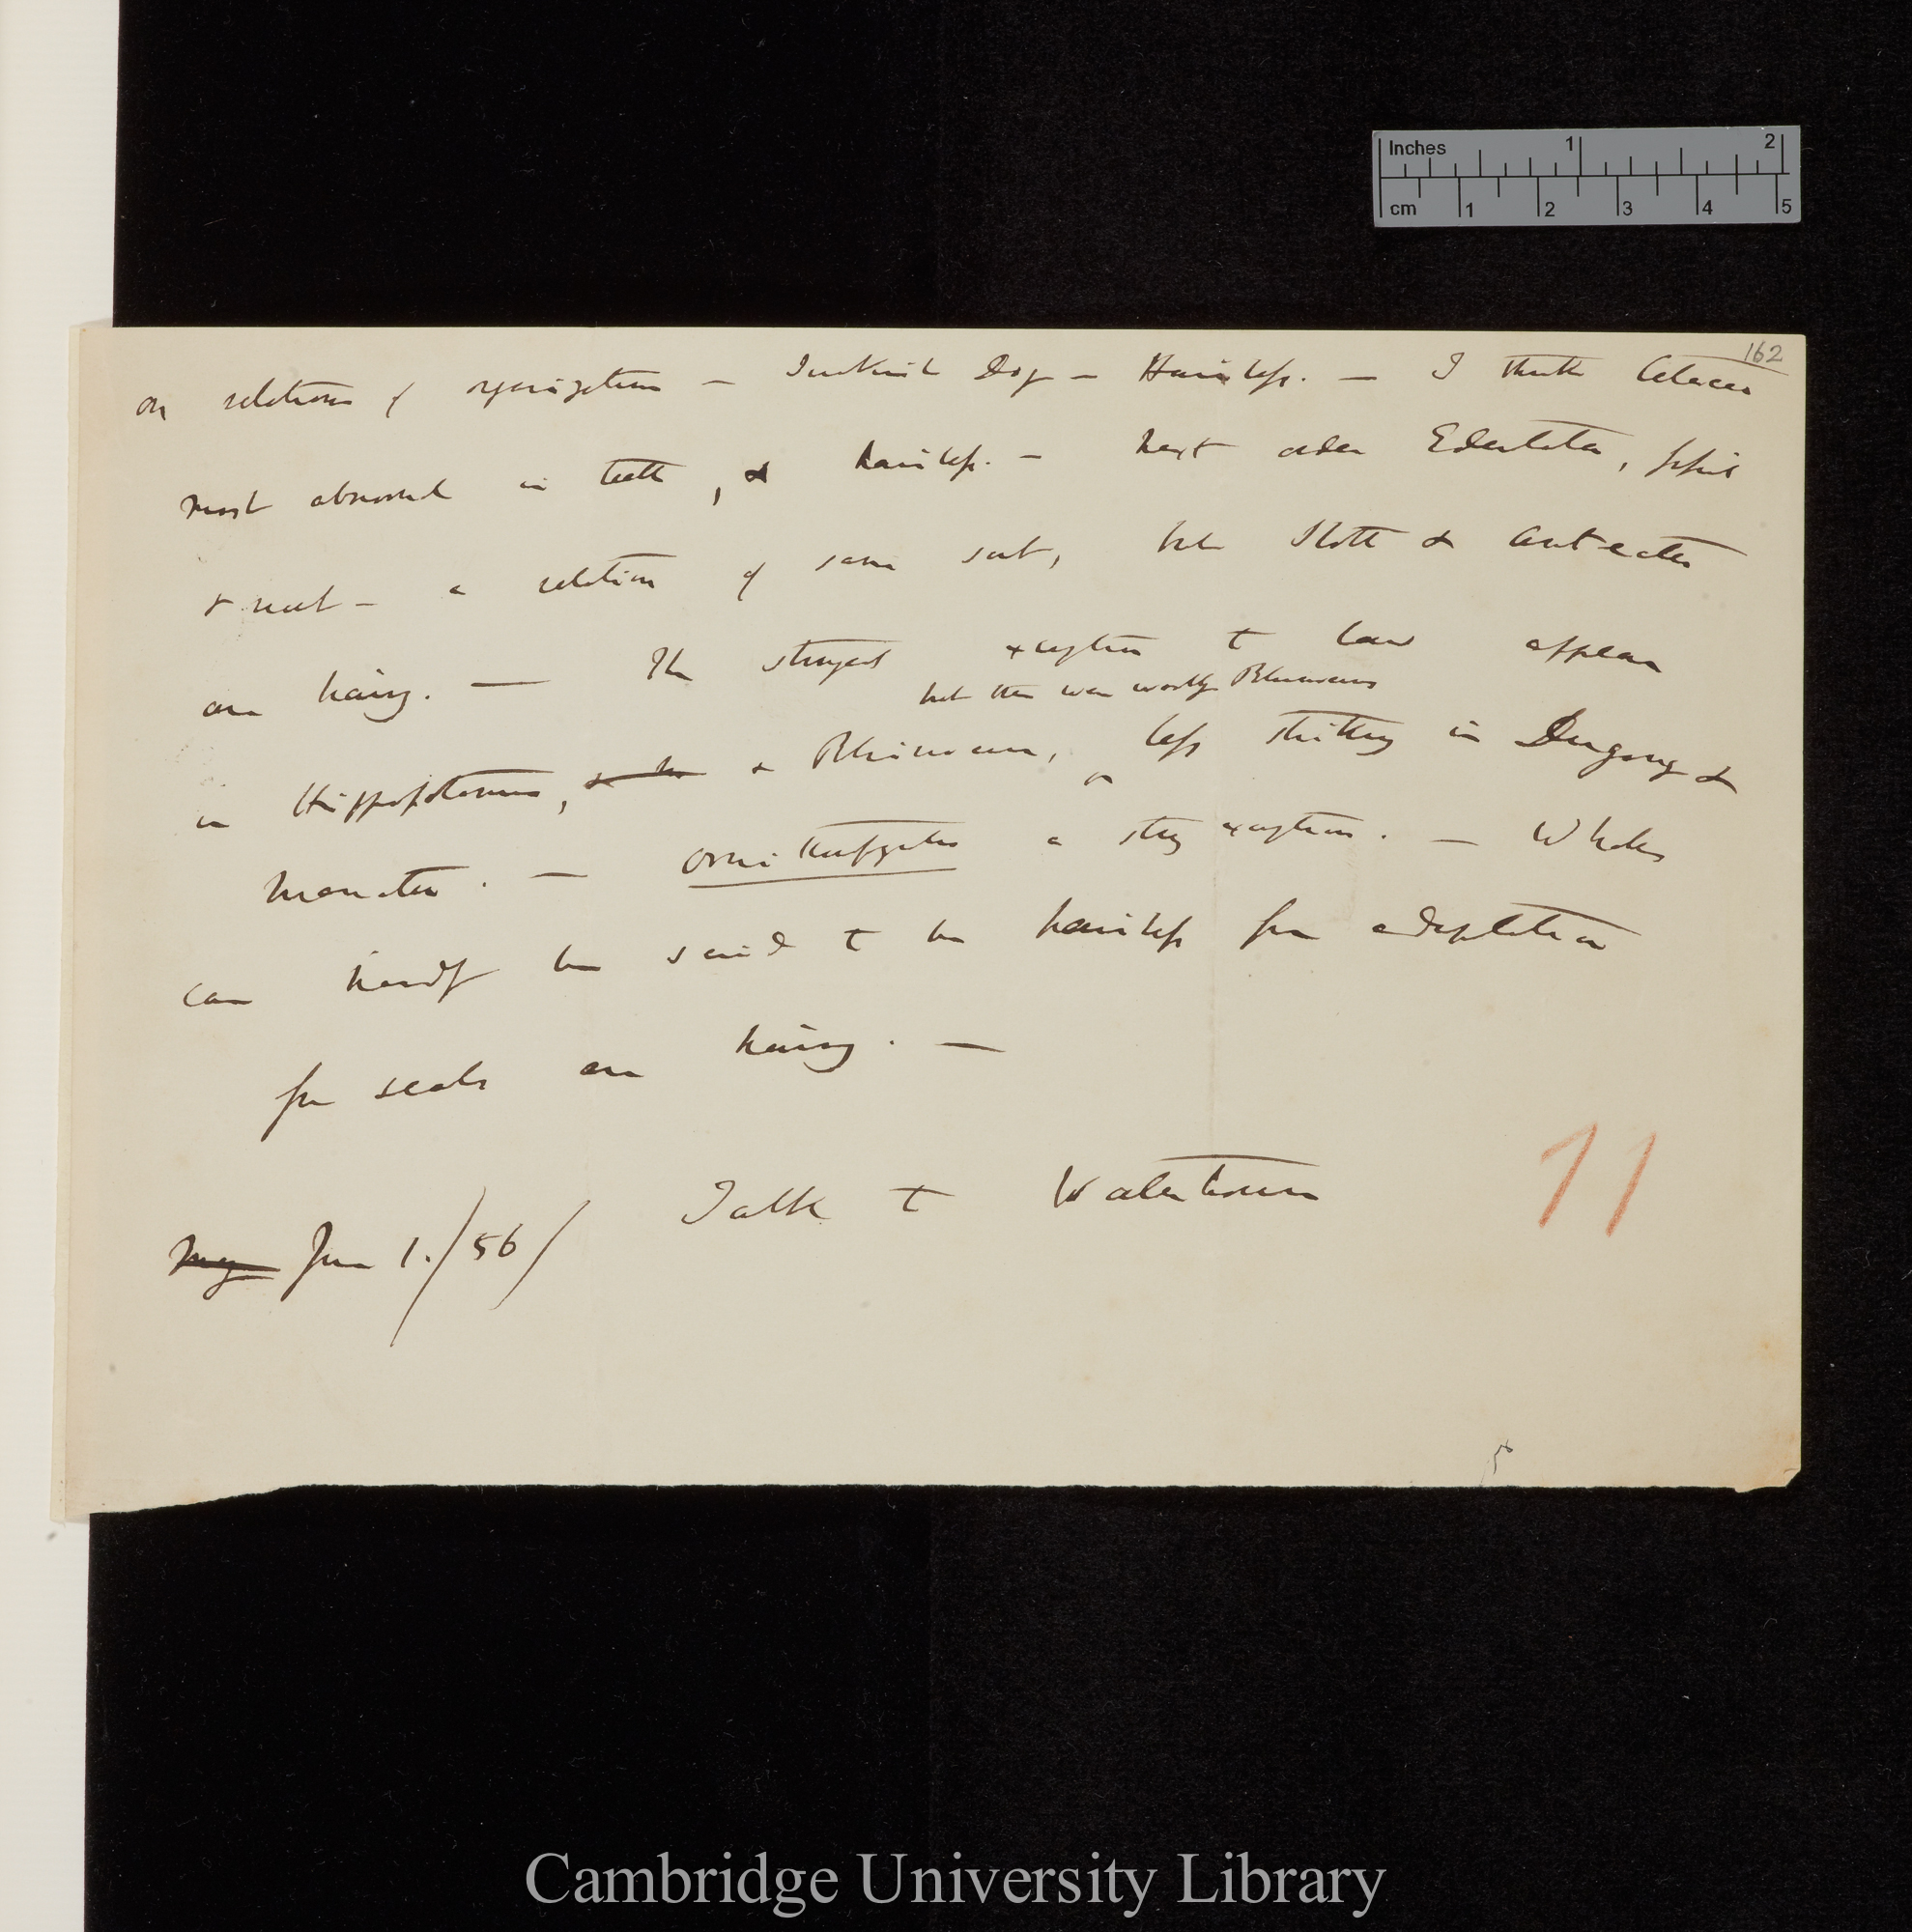 Inches 1 2
cm 1 2 3 4 5
162
On relations of organization — Turkish Dog — Hairless. — I think Cetacea
most abnormal in teeth, & hairless. — next order Edentata, fossil
& recent — a relation of some sort, but Sloth & Ant eater
are hairy. — The strongest exception to law appear
but there were woolly Rhinoceros
in Hippopotamus, & Rhinoceros, ^ less striking in Dugong &
Manatee. — Ornithorhynchus a strong exception. — Whales
can hardly be said to be hairless from adaptation
for seals are hairy. —
Talk to Waterhouse
11
May June 1./56/
Cambridge University Library